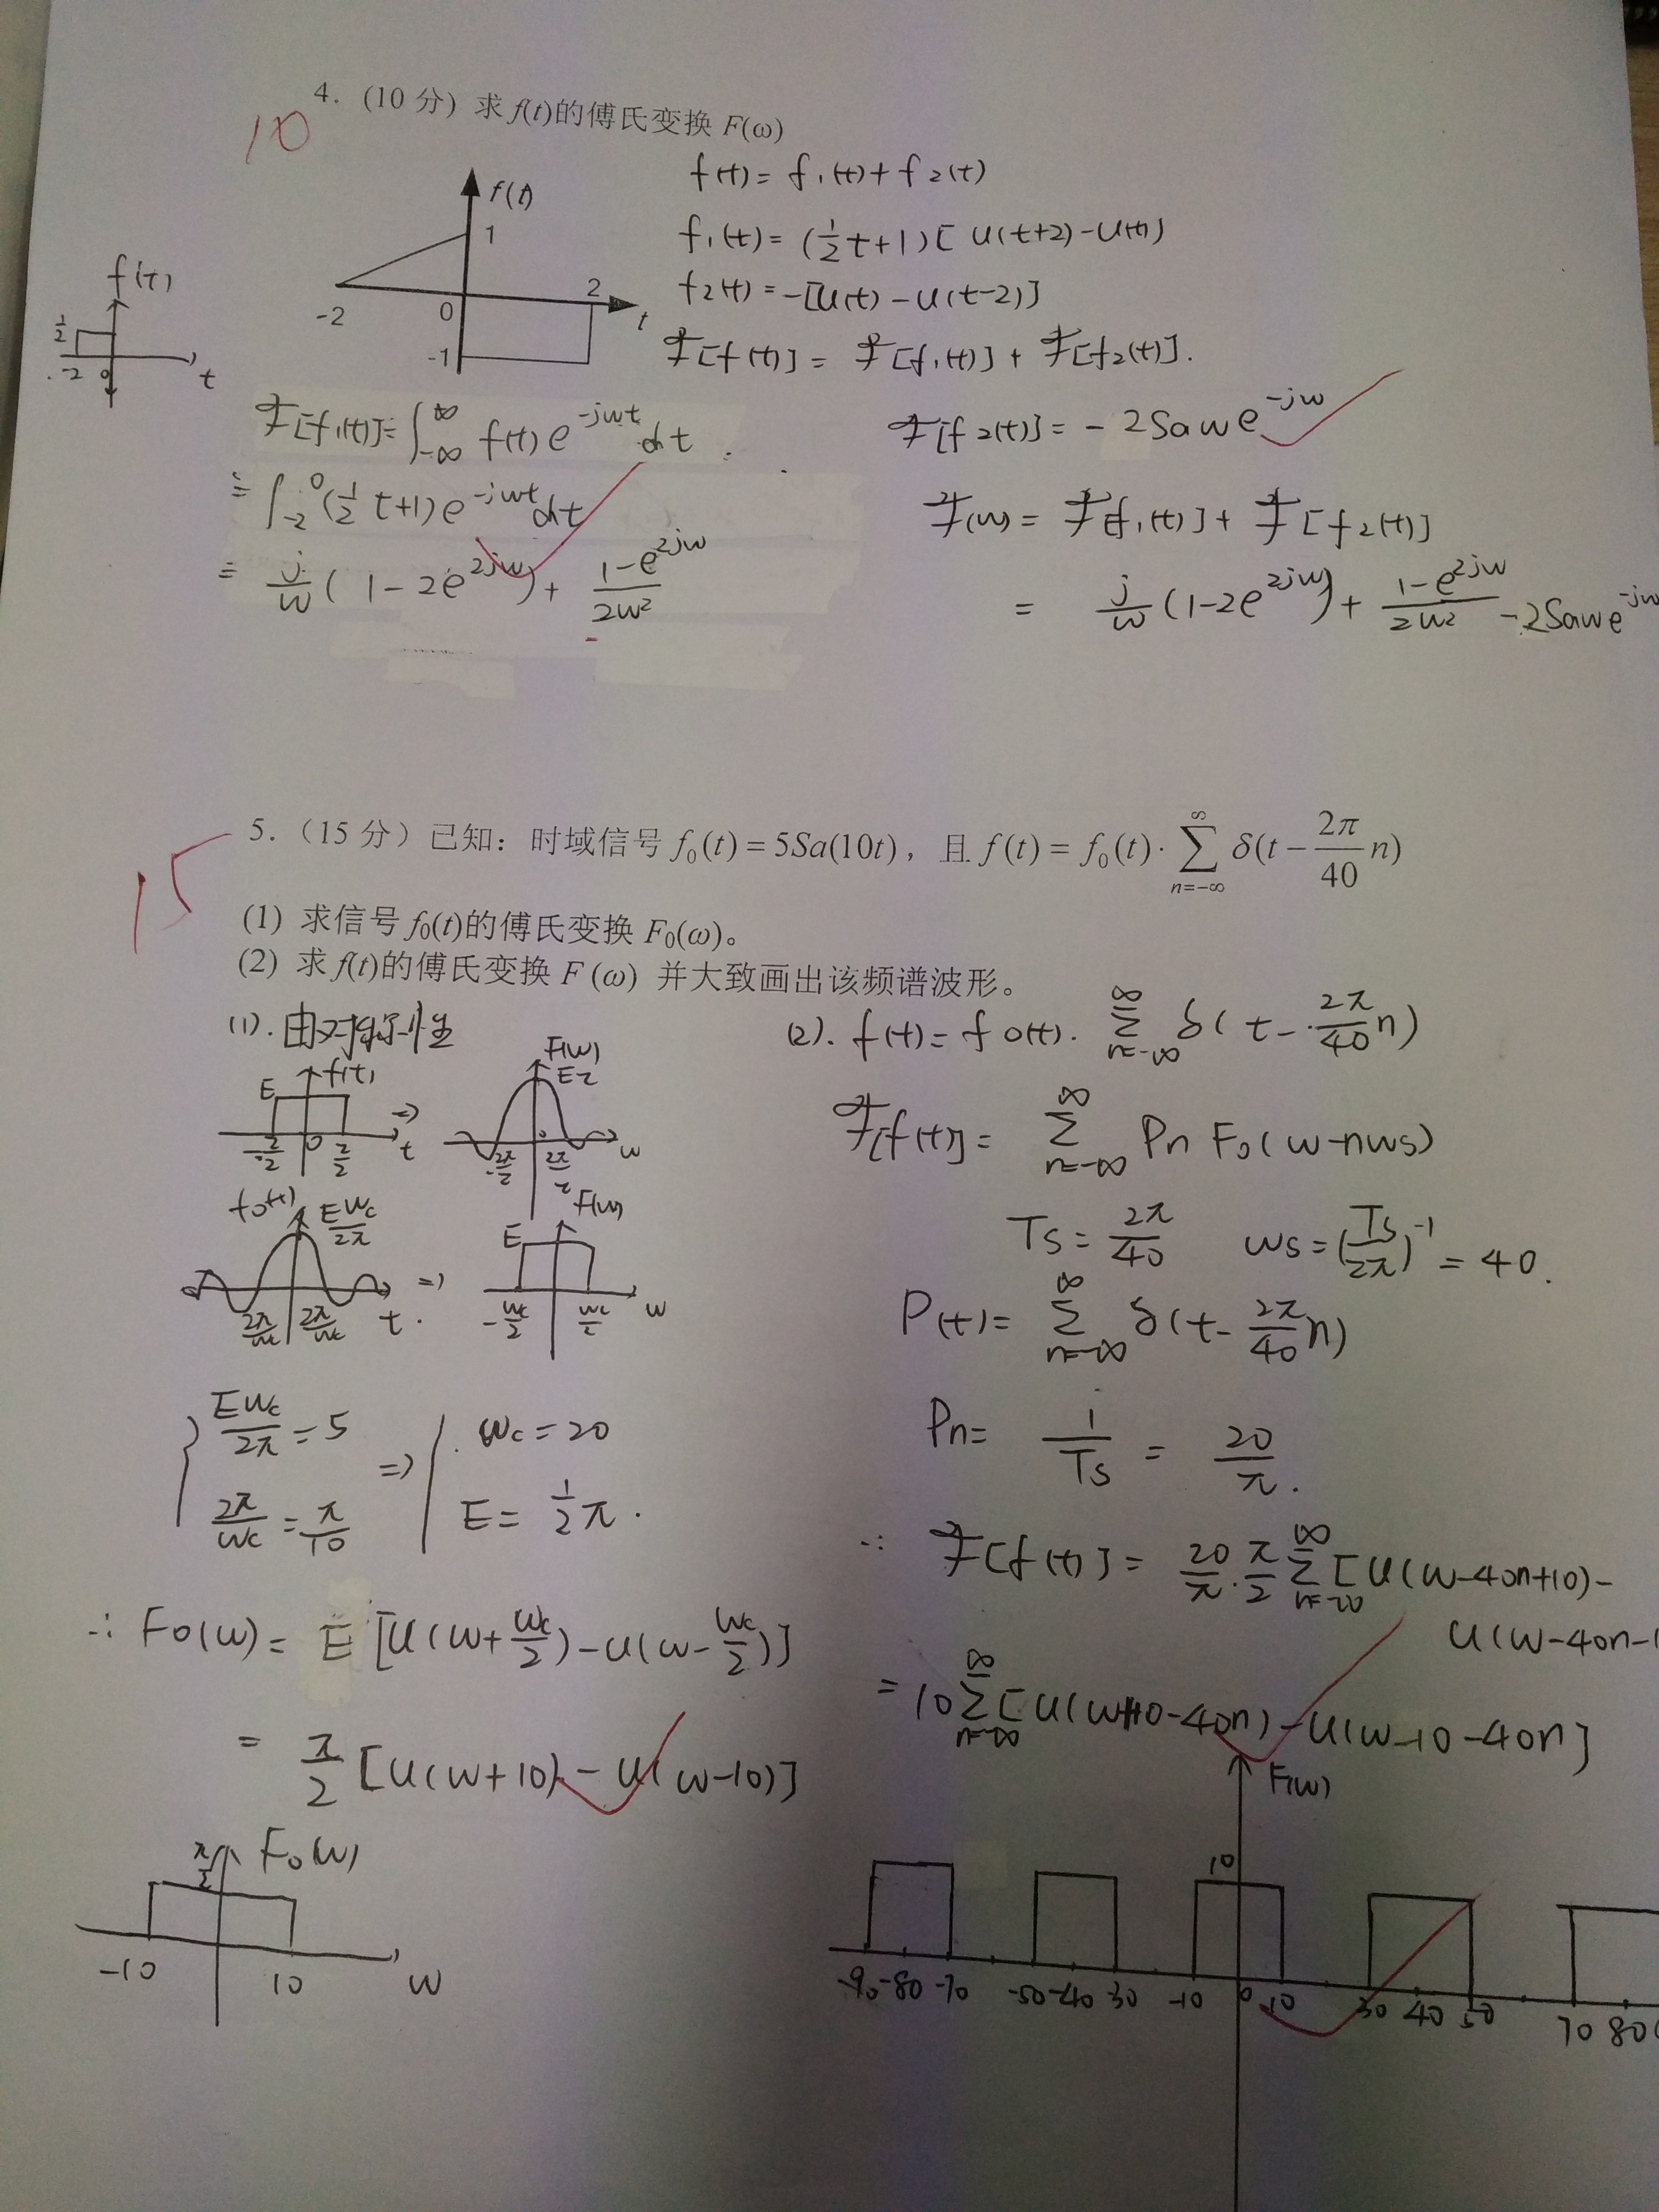 4. (10 分) 求 f(t)的傅氏变换 F(ω)
10
f(t)
1
-2
0
2
t
-1
f(t)
1/2
-2
0
t
f(t) = f₁(t) + f₂(t)
f₁(t) = (1/2 t+1)[u(t+2)-u(t)]
f₂(t) = -[u(t) - u(t-2)]
F[f(t)] = F[f₁(t)] + F[f₂(t)].
F[f₁(t)] = ∫_{-∞}^{∞} f(t)e^{-jωt}dt
= ∫_{-2}^{0} (1/2 t+1)e^{-jωt}dt
= j/ω (1-2e^{2jω}) + (1-e^{2jω})/(2ω²)
F[f₂(t)] = -2Saωe^{-jω}
F(ω) = F[f₁(t)] + F[f₂(t)]
= j/ω (1-2e^{2jω}) + (1-e^{2jω})/(2ω²) - 2Saωe^{-jω}
15
5. （15 分）已知：时域信号 f₀(t) = 5Sa(10t)，且 f(t) = f₀(t)·∑_{n=-∞}^{∞} δ(t - 2π/40 n)
(1) 求信号 f₀(t)的傅氏变换 F₀(ω)。
(2) 求 f(t)的傅氏变换 F (ω) 并大致画出该频谱波形。
(1). 由对称性
E
f(t)
-τ/2
0
τ/2
t
⇒
F(ω)
Eτ
-2π/τ
2π/τ
ω
f₀(t)
Eωc/2π
2π/ωc
2π/ωc
t.
⇒
F(ω)
E
-ωc/2
ωc/2
ω
{ Eωc/2π = 5 ⇒ ωc = 20
2π/ωc = π/10 E = 1/2 π.
∴ F₀(ω) = E [u(ω+ωc/2) - u(ω-ωc/2)]
= π/2 [u(ω+10) - u(ω-10)]
π/2
F₀(ω)
-10
10
ω
(2). f(t) = f₀(t). ∑_{n=-∞}^{∞} δ(t - 2π/40 n)
F[f(t)] = ∑_{n=-∞}^{∞} Pn F₀(ω-nωs)
Ts = 2π/40 ωs = (Ts/2π)^{-1} = 40.
P(t) = ∑_{n=-∞}^{∞} δ(t - 2π/40 n)
Pn = 1/Ts = 20/π.
∴ F[f(t)] = 20/π · π/2 ∑_{n=-∞}^{∞} [u(ω-40n+10) -
u(ω-40n-1
= 10 ∑_{n=-∞}^{∞} [u(ω+10-40n) - u(ω-10-40n]
F(ω)
10
-90 -80 -70 -50 -40 30 -10 0 10 30 40 50 70 80